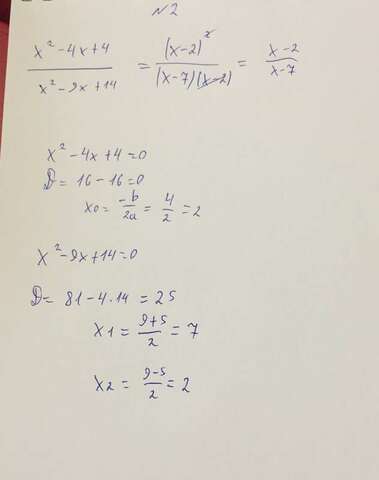 N2
x² - 4x + 4 / x² - 9x + 14 = (x-2)² / (x-7)(x-2) = x-2 / x-7
x² - 4x + 4 = 0
D = 16 - 16 = 0
x0 = -b/2a = 4/2 = 2
x² - 9x + 14 = 0
D = 81 - 4·14 = 25
x1 = 9+5/2 = 7
x2 = 9-5/2 = 2